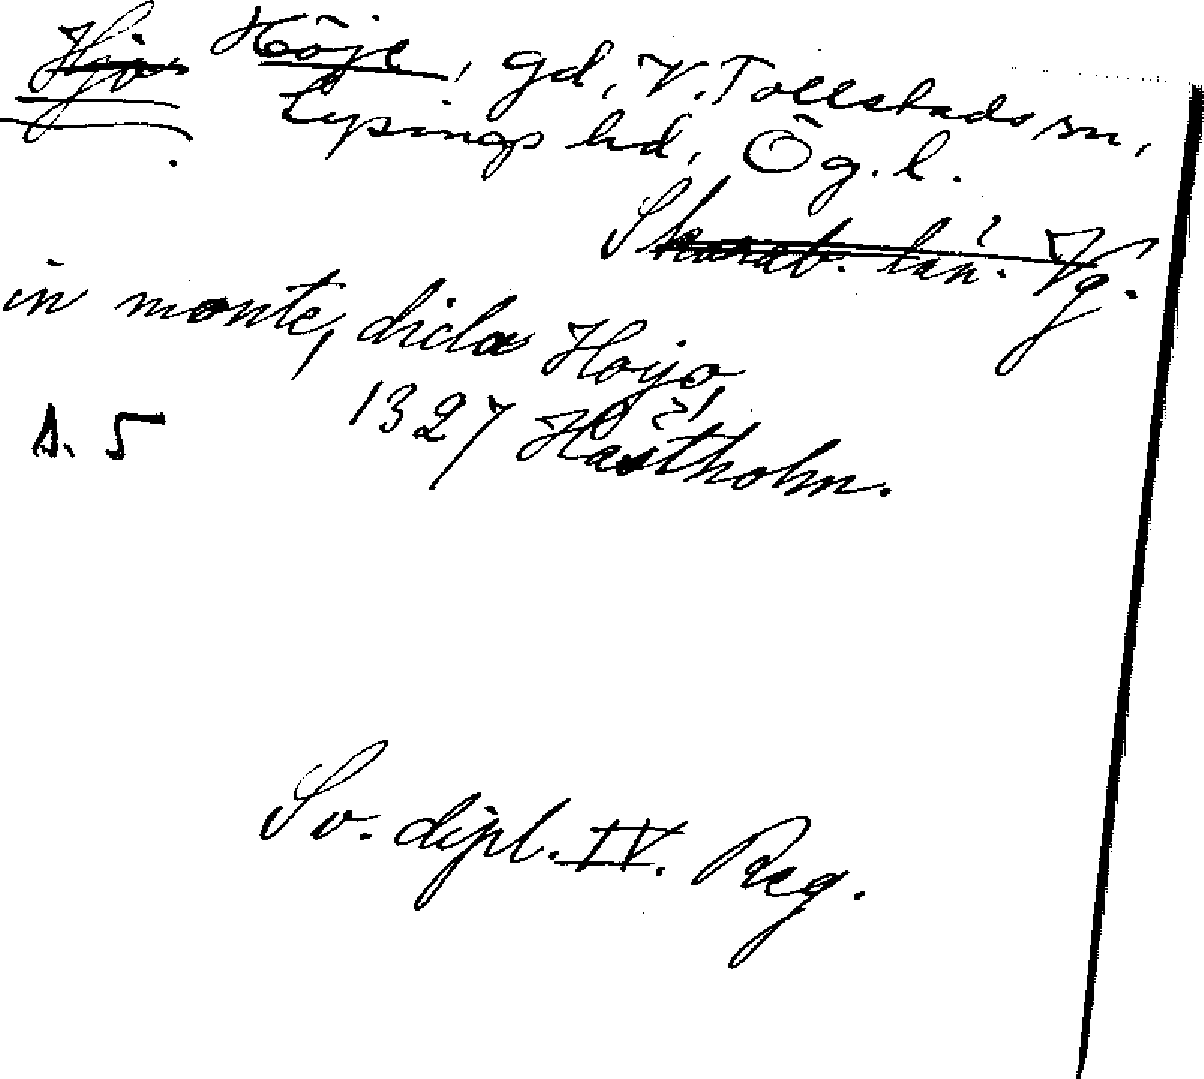 Hjo Höje, gd, V. Tollstads sn,
Lysings hd, Ög. l.
Skarab. län. Vg.
in monte, dicta Hoyo,
1327 21/ Hästholm.
A. 5
Sv. dipl. IV. Reg.